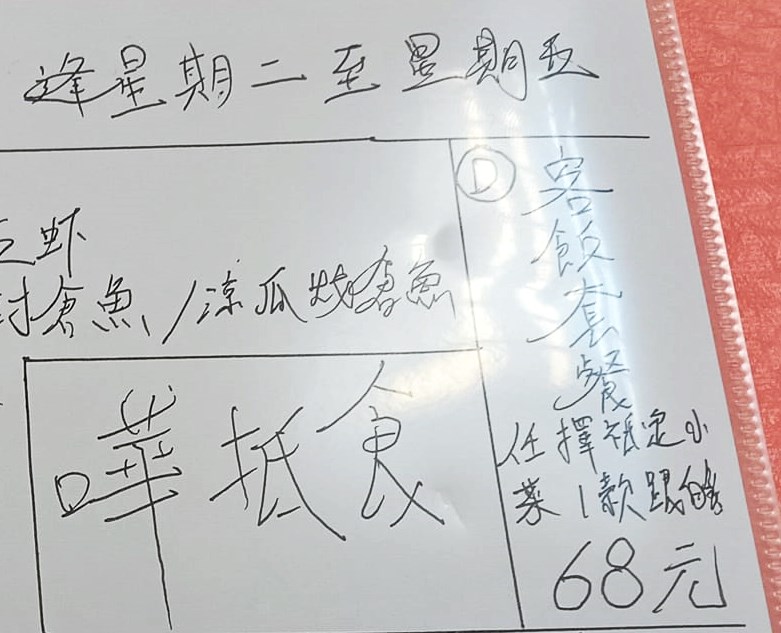 逢星期二至星期五
虾
倉魚/凉瓜炆倉魚
嘩抵食
D
客飯套餐
任擇祗定小
菜1款跟
68元